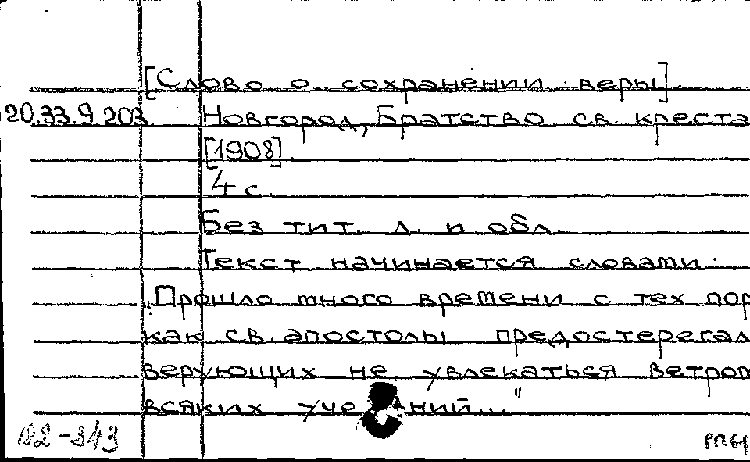 [Слово о сохранении веры]
20.33.9.203 Новгород, Братство св. креста
[1908]
4 с.
Без тит. л. и обл.
Текст начинается словами:
"Прошло много времени с тех пор
как св. апостолы предостерегал
верующих не увлекаться ветром
всяких учений..."